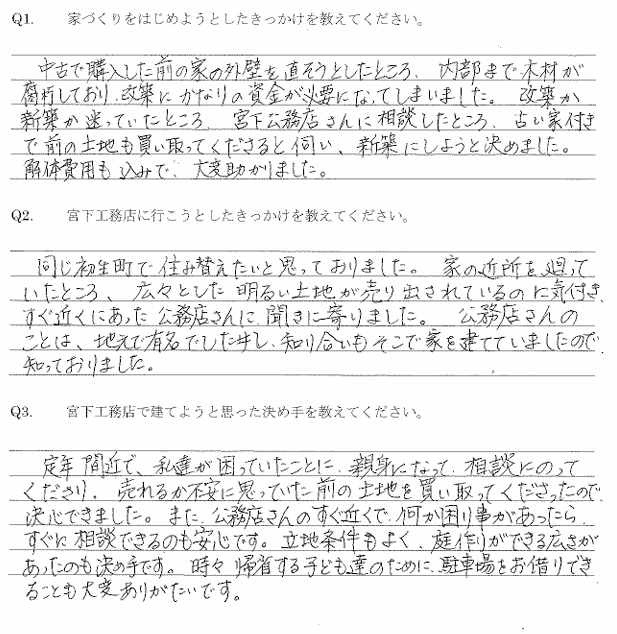 Q1. 家づくりをはじめようとしたきっかけを教えてください。
中古で購入した前の家の外壁を直そうとしたところ、内部まで木材が
腐朽しており、改築にかなりの資金が必要になってしまいました。 改築か
新築か迷っていたところ、宮下公務店さんに相談したところ、古い家付き
で前の土地も買い取ってくださると伺い、新築にしようと決めました。
解体費用も込みで、大変助かりました。
Q2. 宮下工務店に行こうとしたきっかけを教えてください。
同じ初生町で住み替えたいと思っておりました。 家の近所を廻って
いたところ、広々とした明るい土地が売り出されているのに気付き、
すぐ近くにあった公務店さんに聞きに寄りました。 公務店さんの
ことは、地元で有名でしたし、知り合いもそこで家を建てていましたので
知っておりました。
Q3. 宮下工務店で建てようと思った決め手を教えてください。
定年間近で、私達が困っていたことに、親身になって、相談にのって
くださり、売れるか不安に思っていた前の土地を買い取ってくださったので、
決心できました。また、公務店さんのすぐ近くで、何か困り事があったら、
すぐに相談できるのも安心です。立地条件もよく、庭作りができる広さが
あったのも決め手です。時々帰省する子ども達のために、駐車場をお借りでき
ることも大変ありがたいです。